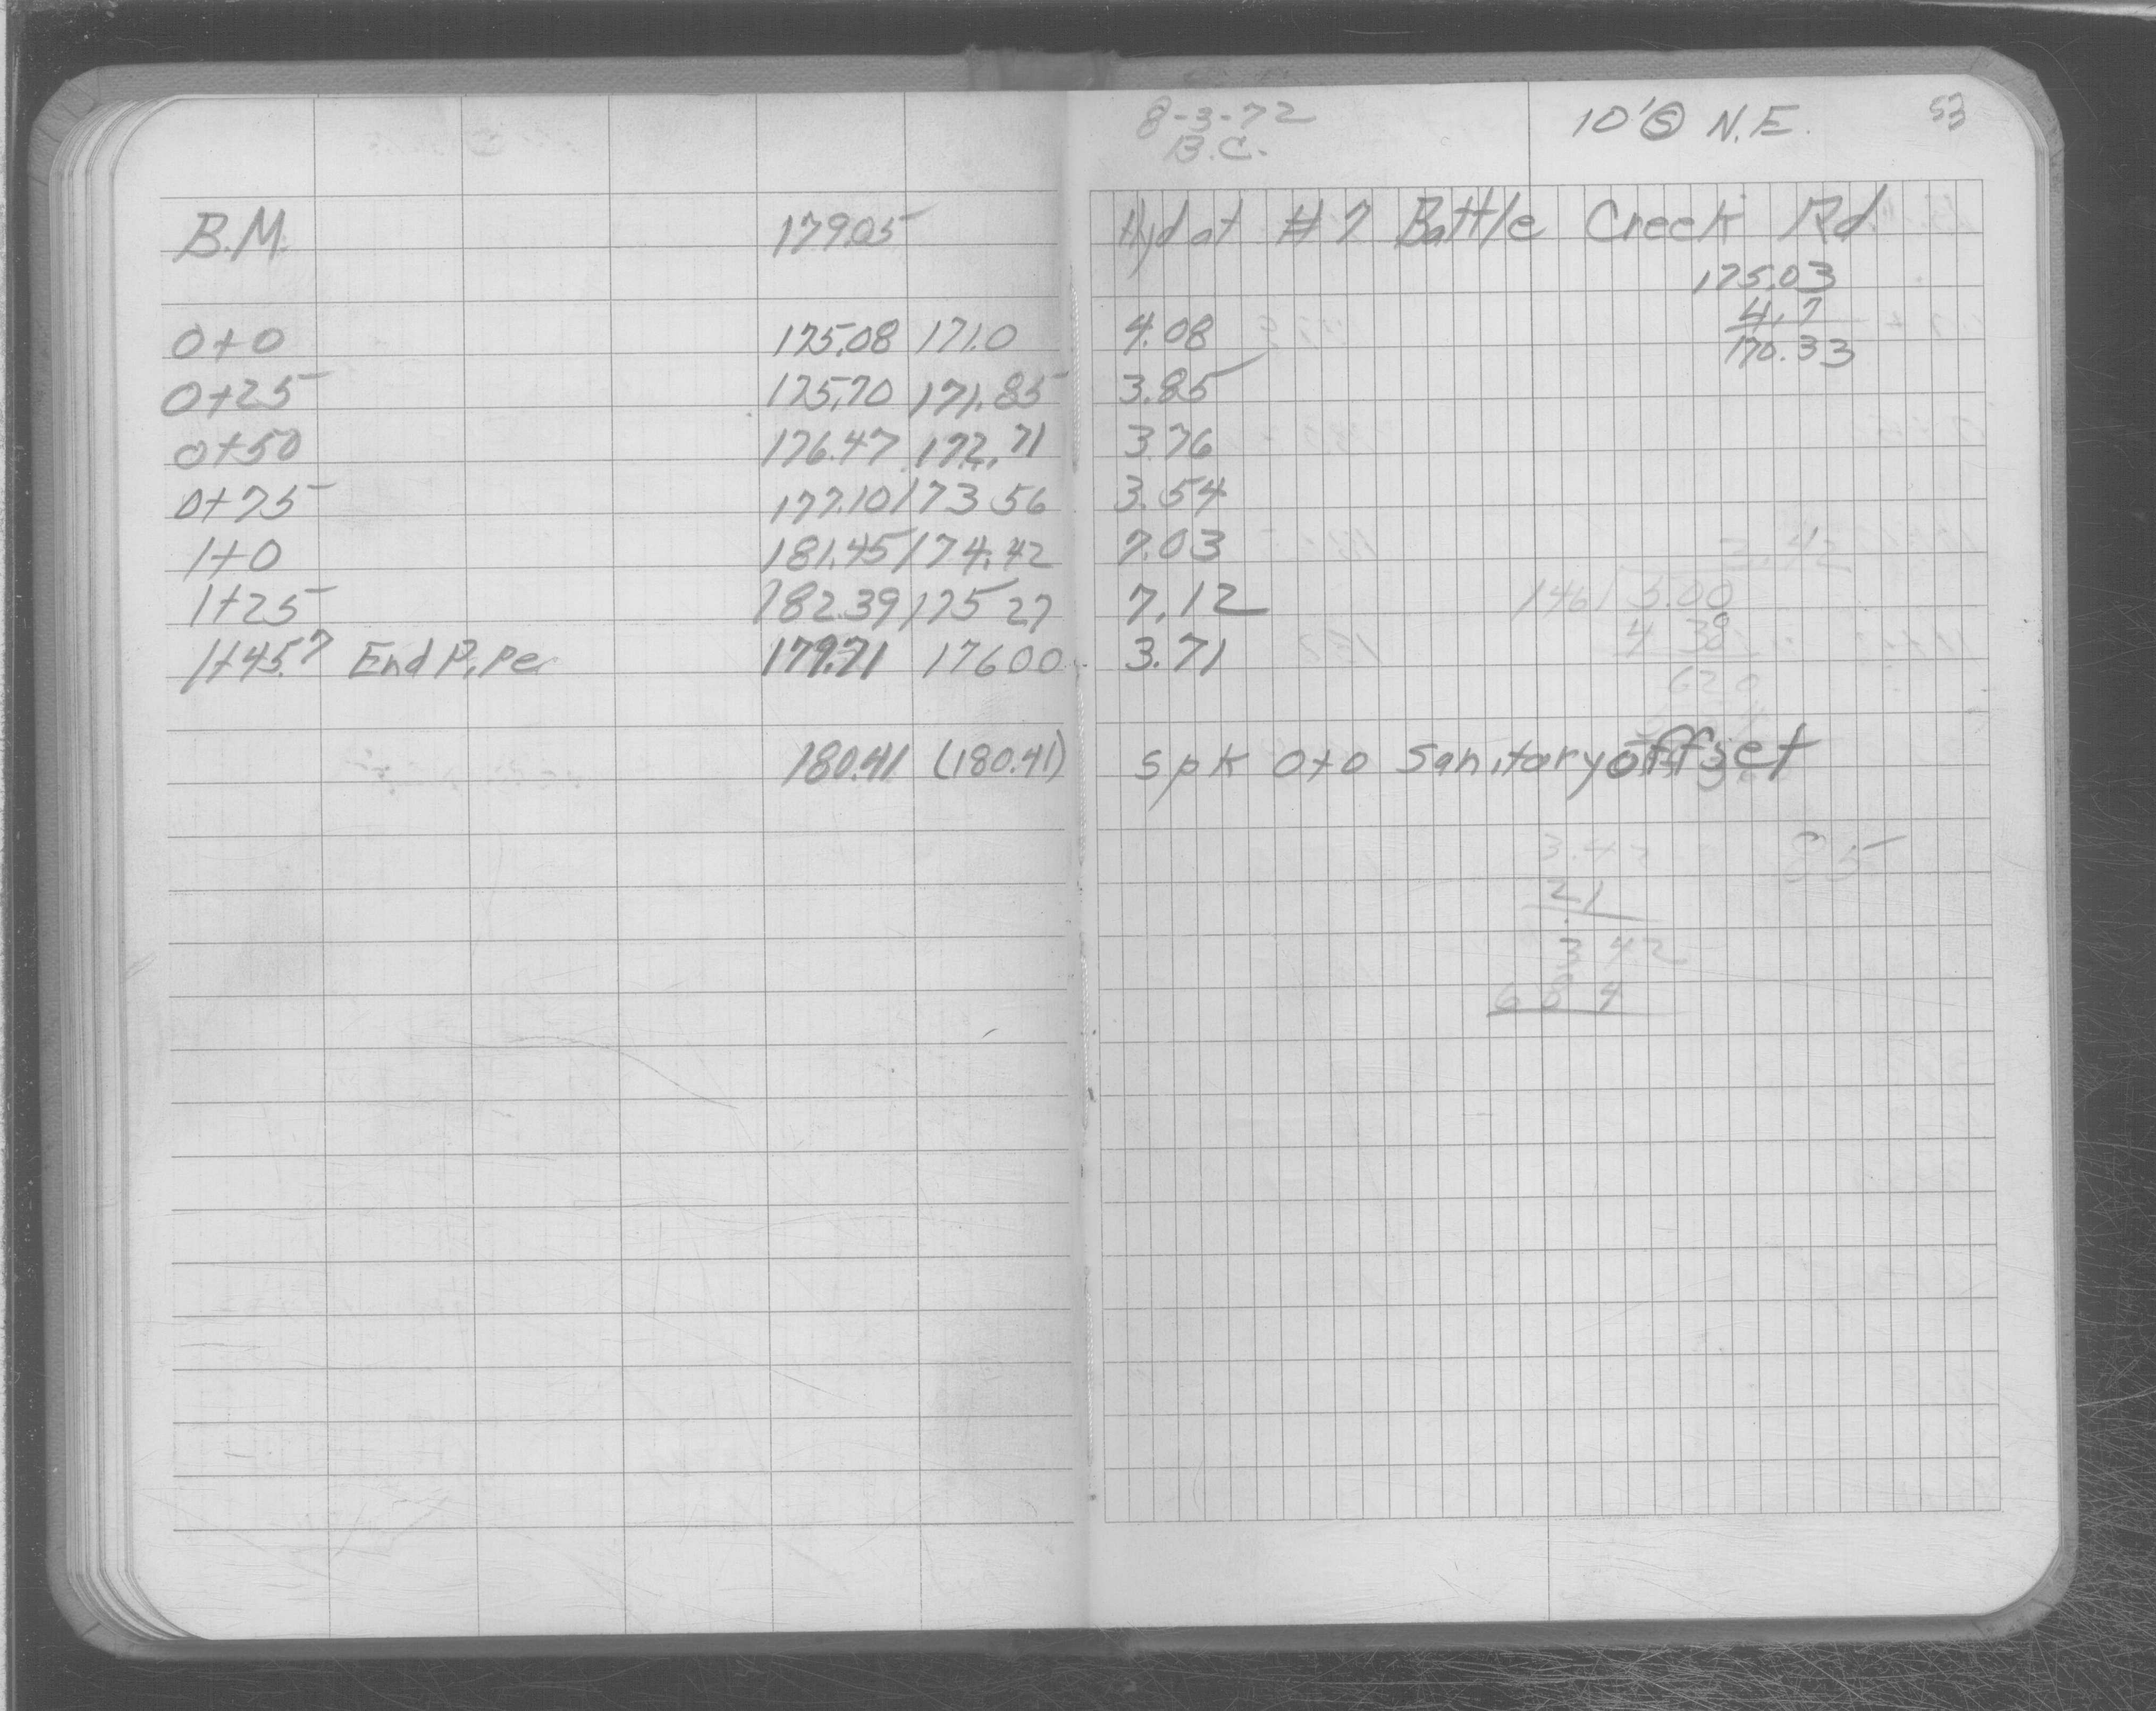 8-3-72 10' Ⓢ N.E. 53
B.C.
B.M. 179.05 Hyd at #7 Battle Creek Rd.
175.03
4.7
170.33
0+0 175.08 171.0 4.08
0+25 175.70 171.85 3.85
0+50 176.47 172.71 3.76
0+75 177.10 173 56 3.54
1+0 181.45 174.42 7.03
1+25 182.39 175 27 7.12
1+45.7 End Pipe 179.71 176 00 3.71
3.42
146 5.00
4 38
620
180.41 (180.41) spk 0+0 Sanitary offset
3.42 85
21
3 42
6 8 4